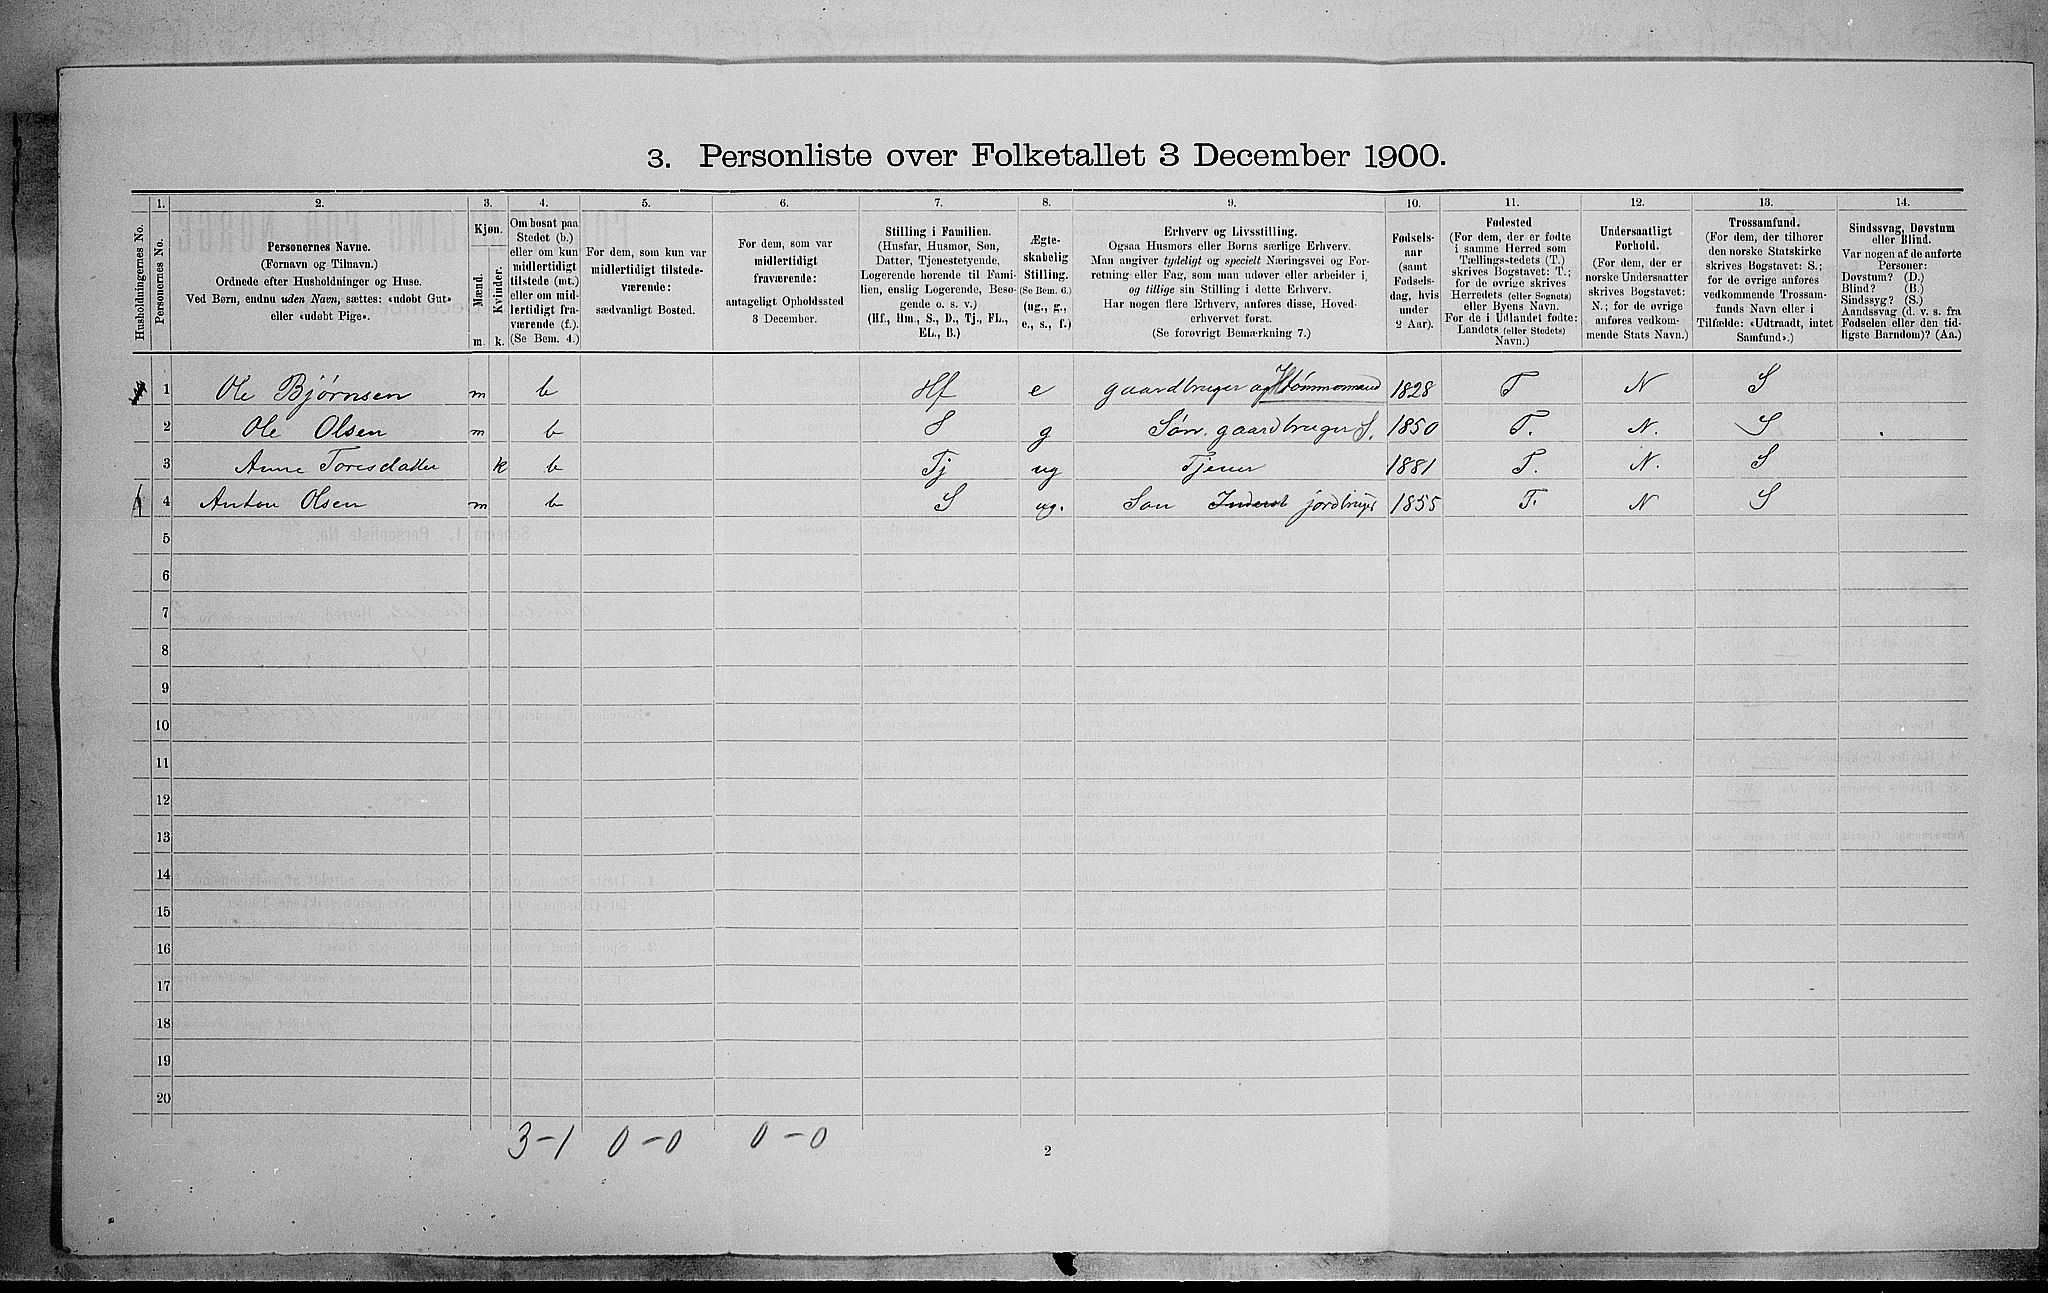 3. Personliste over Folketallet 3 December 1900.
Husholdningernes No.
1.
Personernes No.
2.
Personernes Navne.
(Fornavn og Tilnavn.)
Ordnede efter Husholdninger og Huse.
Ved Børn, endnu uden Navn, sættes: «udøbt Gut»
eller «udøbt Pige».
3.
Kjøn.
Mænd.
Kvinder.
m. k.
4.
Om bosat paa
Stedet (b.)
eller om kun
midlertidigt
tilstede (mt.)
eller om mid-
lertidigt fra-
værende (f.).
(Se Bem. 4.)
5.
For dem, som kun var
midlertidigt tilstede-
værende:
sædvanligt Bosted.
6.
For dem, som var
midlertidigt
fraværende:
antageligt Opholdssted
3 December.
7.
Stilling i Familien.
(Husfar, Husmor, Søn,
Datter, Tjenestetyende,
Logerende hørende til Fami-
lien, enslig Logerende, Besø-
gende o. s. v.)
(Hf., Hm., S., D., Tj., FL.,
EL., B.)
8.
Ægte-
skabelig
Stilling.
(Se Bem. 6.)
(ug., g.,
e., s., f.)
9.
Erhverv og Livsstilling.
Ogsaa Husmors eller Børns særlige Erhverv.
Man angiver tydeligt og specielt Næringsvei og For-
retning eller Fag, som man udøver eller arbeider i,
og tillige sin Stilling i dette Erhverv.
Har nogen flere Erhverv, anføres disse, Hoved-
erhvervet først.
(Se forøvrigt Bemærkning 7.)
10.
Fødsels-
aar
(samt
Fødsels-
dag, hvis
under
2 Aar).
11.
Fødested
(For dem, der er fødte
i samme Herred som
Tællingsstedets (T.)
skrives Bogstavet: T.;
for de øvrige skrives
Herredets (eller Sognets)
eller Byens Navn.
For de i Udlandet fødte:
Landets (eller Stedets)
Navn.)
12.
Undersaatligt
Forhold.
(For dem, der er
norske Undersaatter
skrives Bogstavet:
N.; for de øvrige
anføres vedkom-
mende Stats Navn.)
13.
Trossamfund.
(For dem, der tilhører
den norske Statskirke
skrives Bogstavet: S.;
for de øvrige anføres
vedkommende Trossam-
funds Navn eller i
Tilfælde: «Udtraadt, intet
Samfund».)
14.
Sindssvag, Døvstum
eller Blind.
Var nogen af de anførte
Personer:
Døvstum? (D.)
Blind? (B.)
Sindssyg? (S.)
Aandssvag (d. v. s. fra
Fødselen eller den tid-
ligste Barndom)? (Aa.)
1 Ole Bjørnsen m b Hf e gaardbruger og Tømmermand 1828 T N S
2 Ole Olsen m b S g Søn. gaardbruger S. 1850 T. N. S
3 Anne Toresdatter k b Tj ug Tjener 1881 T. N. S
4 Anton Olsen m b S ug. Søn Inderst jordbruger 1855 T. N S
5
6
7
8
9
10
11
12
13
14
15
16
17
18
19
20
3-1 0-0 0-0
2